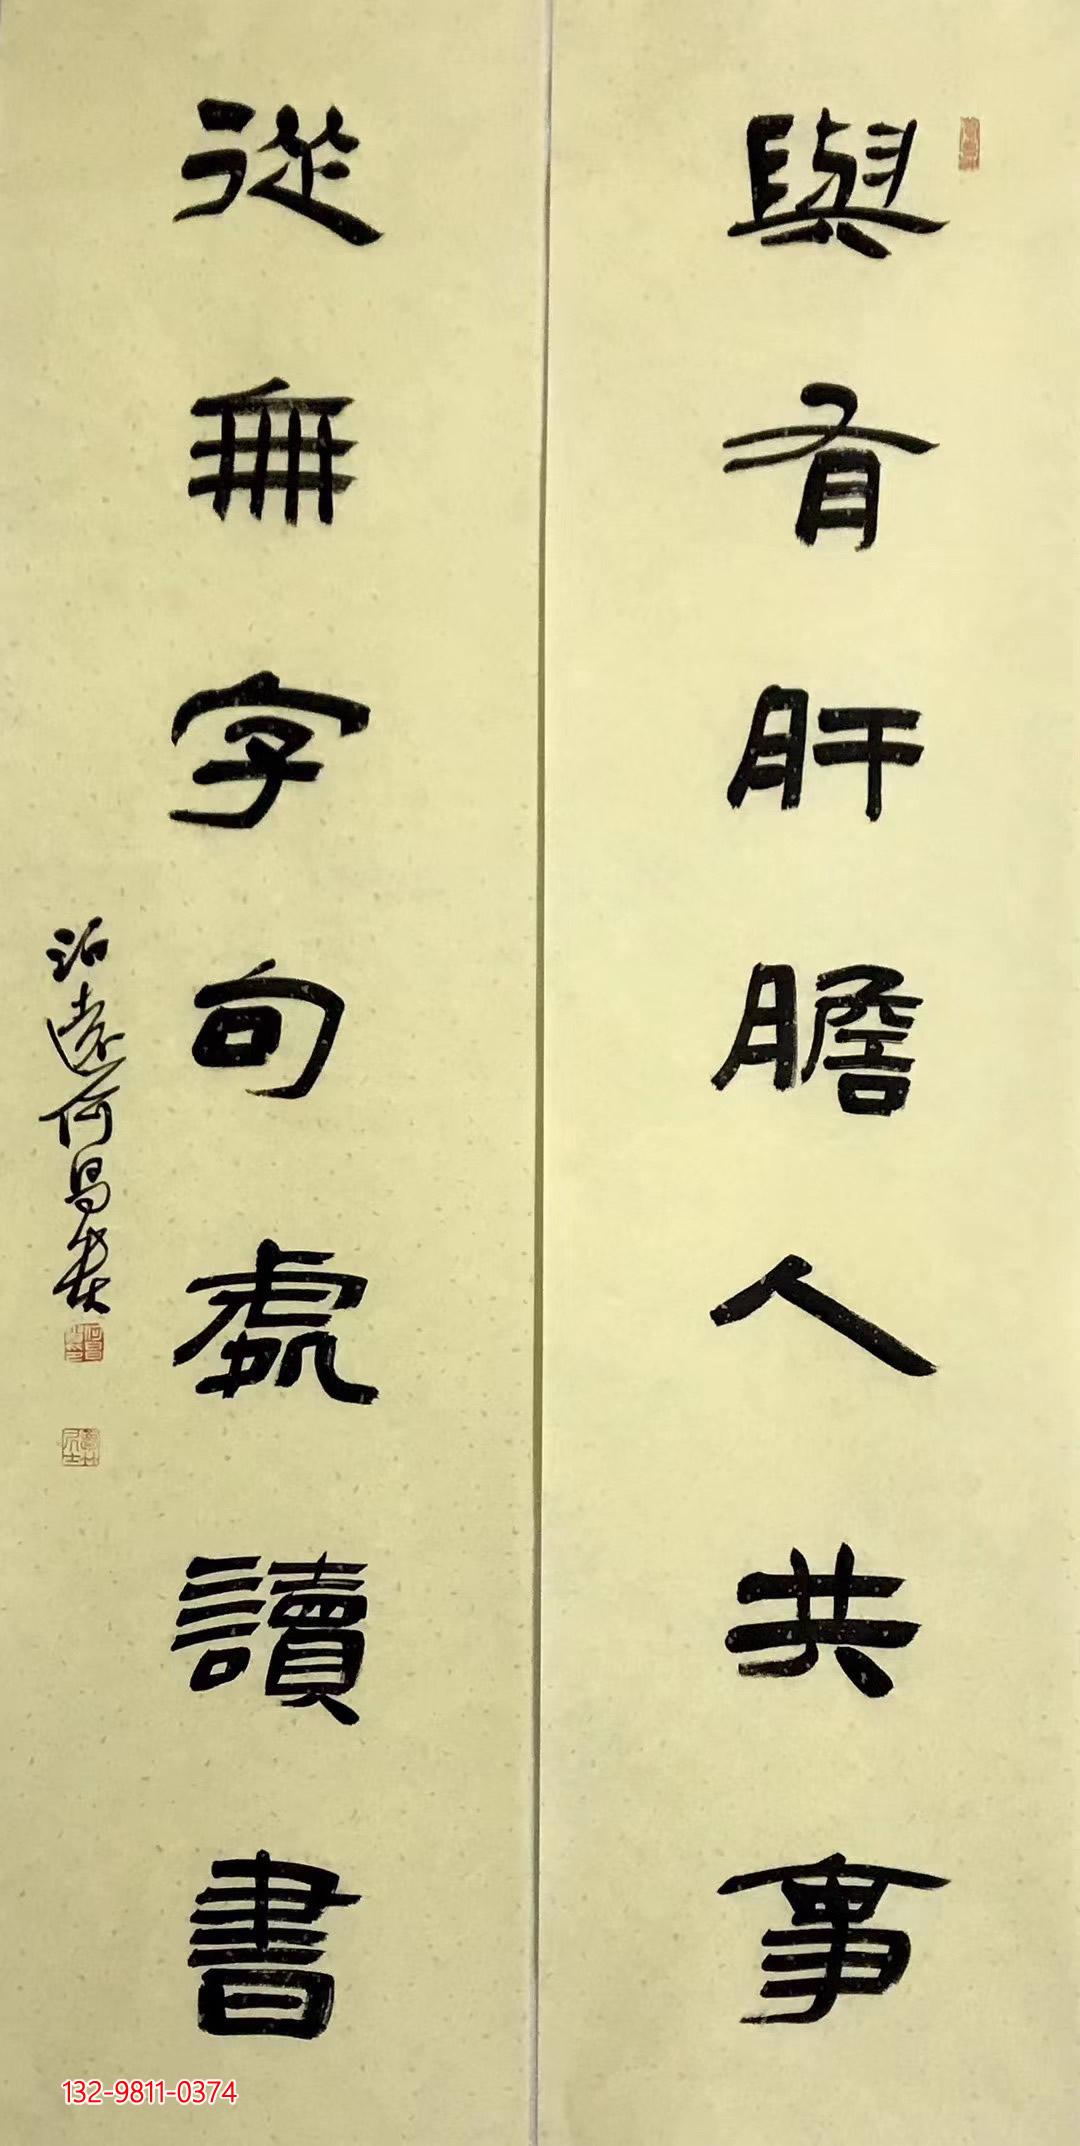 與有肝膽人共事
從無字句處讀書
132-9811-0374